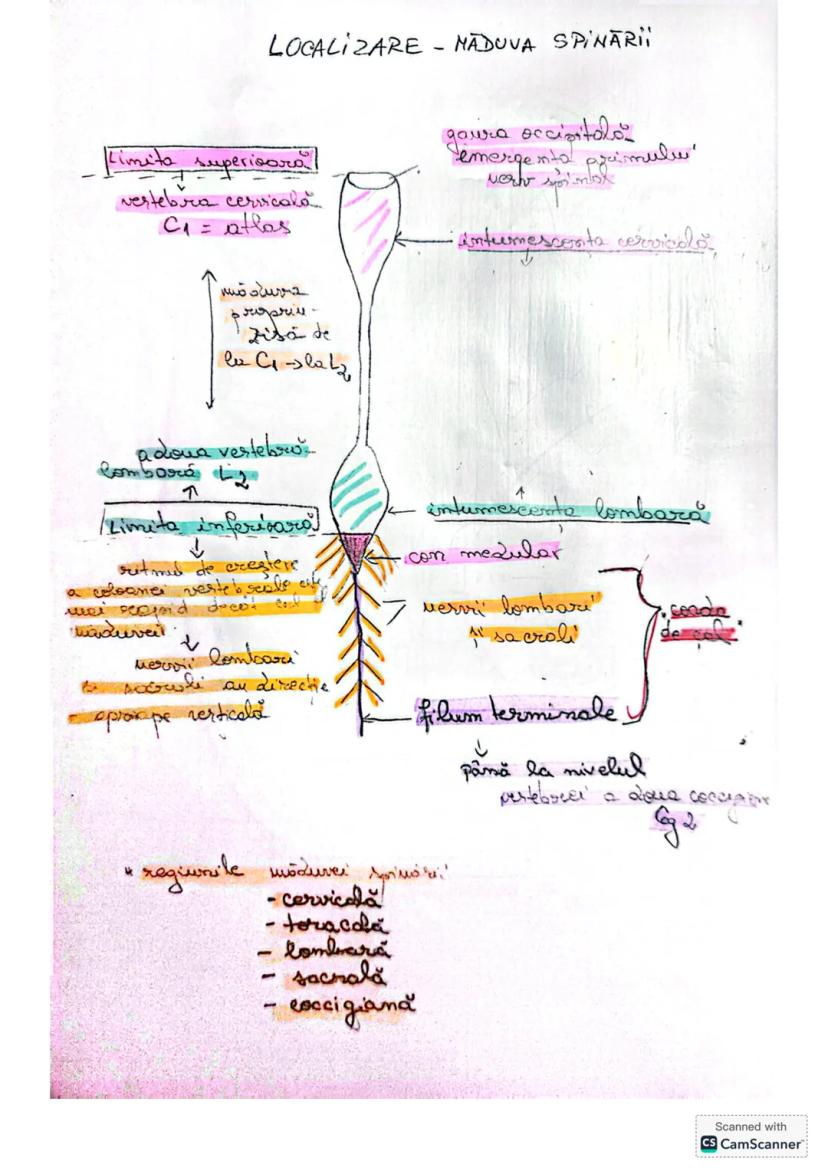 LOCALIZARE - MĂDUVA SPINĂRII
Limita superioară
vertebra cervicală
C1 = atlas
gaura occipitală
emergența primului
nerv spinal
intumescența cervicală
măduva
propriu-
zisă de
la C1 → la L2
a doua vertebră
lombară L2
Limita inferioară
intumescența lombară
con medular
ritmul de creștere
a coloanei vertebrale este
mai rapid decât cel al
măduvei
nervii lombari
și sacrali au direcție
aproape verticală
nervii lombari
și sacrali
"coada
de cal"
filum terminale
până la nivelul
vertebrei a doua coccigiene
Cg 2
* regiunile măduvei spinării
- cervicală
- toracală
- lombară
- sacrală
- coccigiană
Scanned with
CS CamScanner